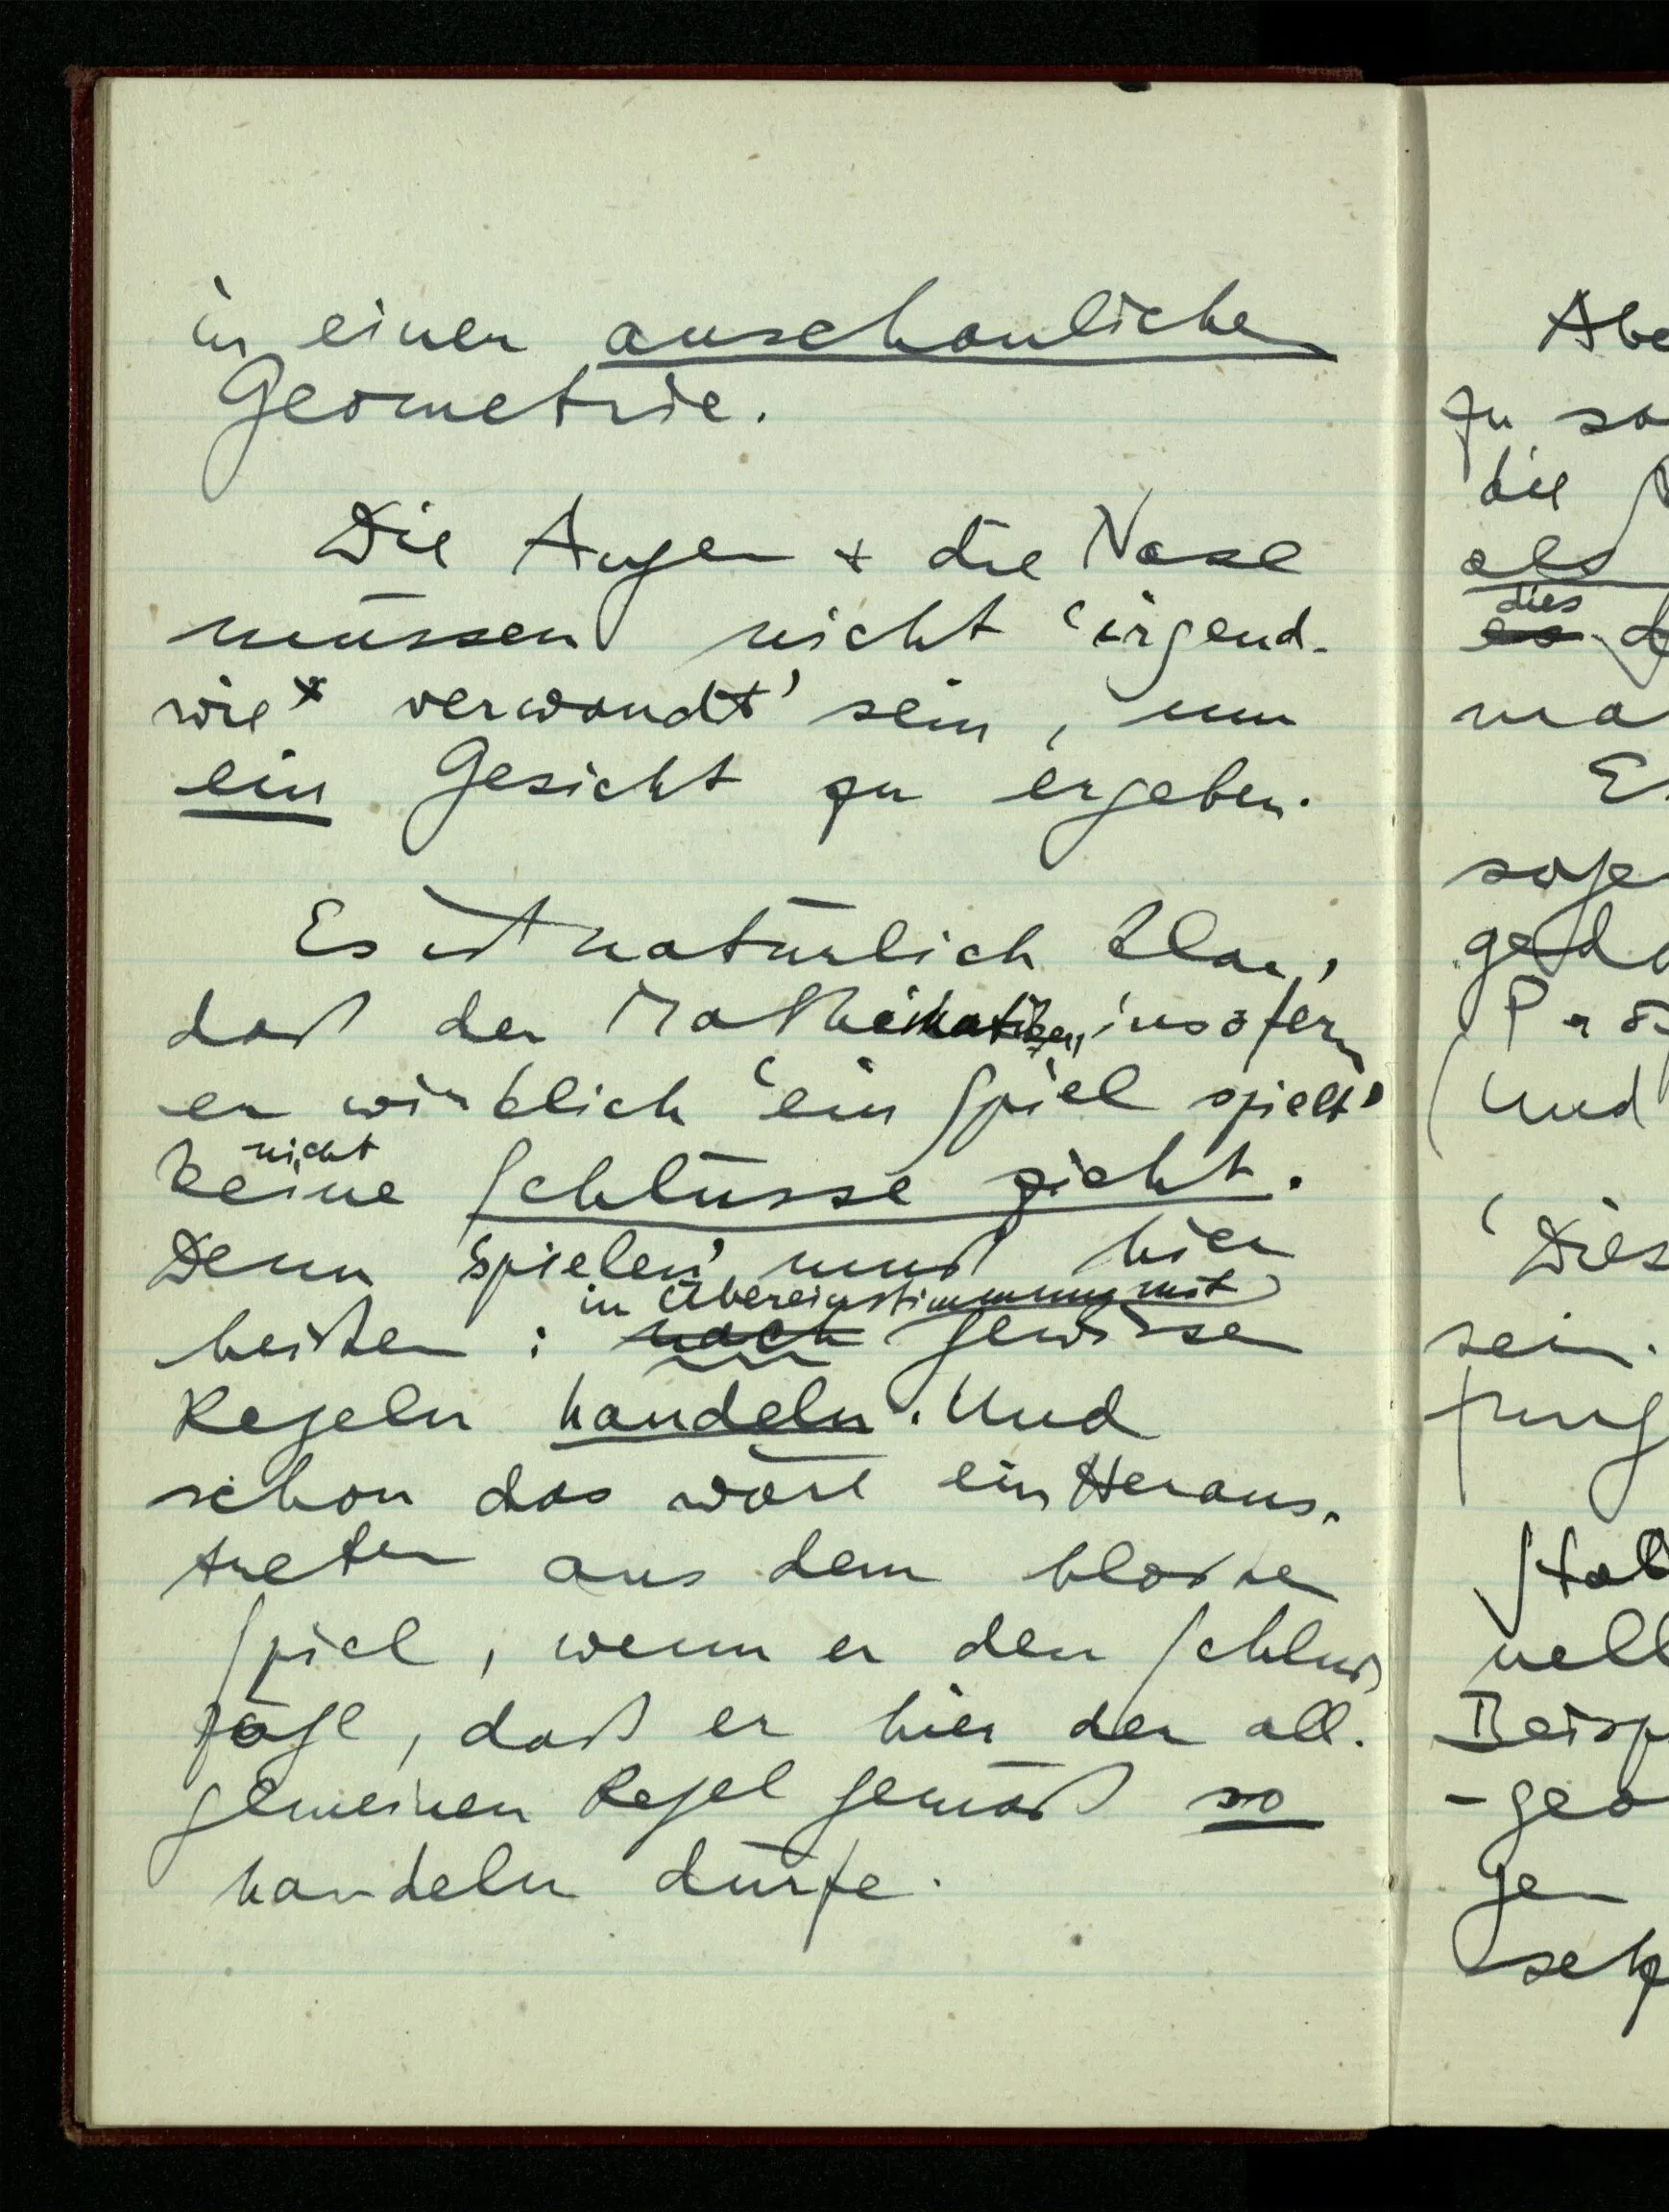 in einer anschaulichen
Geometrie.
Die Augen + die Nase
müssen nicht ‘irgend-
wie verwandt’ sein, um
ein Gesicht zu ergeben.
Es ist natürlich klar,
daß der Mathematiker, insofern
er wirklich ‘ein Spiel spielt’
nicht
keine Schlüsse zieht.
Denn ‘spielen’ muß hier
in Übereinstimmung mit
heißen: nach gewisse
Regeln handeln. Und
schon das wäre ein Heraus-
treten aus dem bloßen
Spiel, wenn er den Schluß
zöge, daß er hier der all-
gemeinen Regel gemäß so
handeln dürfe.
Abe
zu sa
die
als
dies
es
ma
Es
soge
geda
Prä
(Und
‘Dies
sein.
fung
Stat
nell
Beisp
- geo
gen
setz